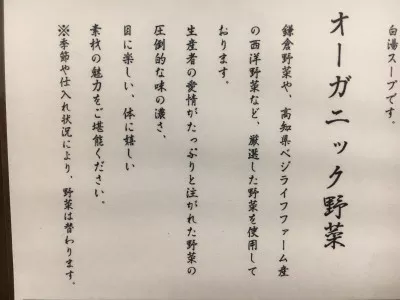 白湯スープです。
オーガニック野菜
鎌倉野菜や、高知県ベジライフファーム産
の西洋野菜など、厳選した野菜を使用して
おります。
生産者の愛情がたっぷりと注がれた野菜の
圧倒的な味の濃さ、
目に楽しい、体に嬉しい
素材の魅力をご堪能ください。
※季節や仕入れ状況により、野菜は替わります。